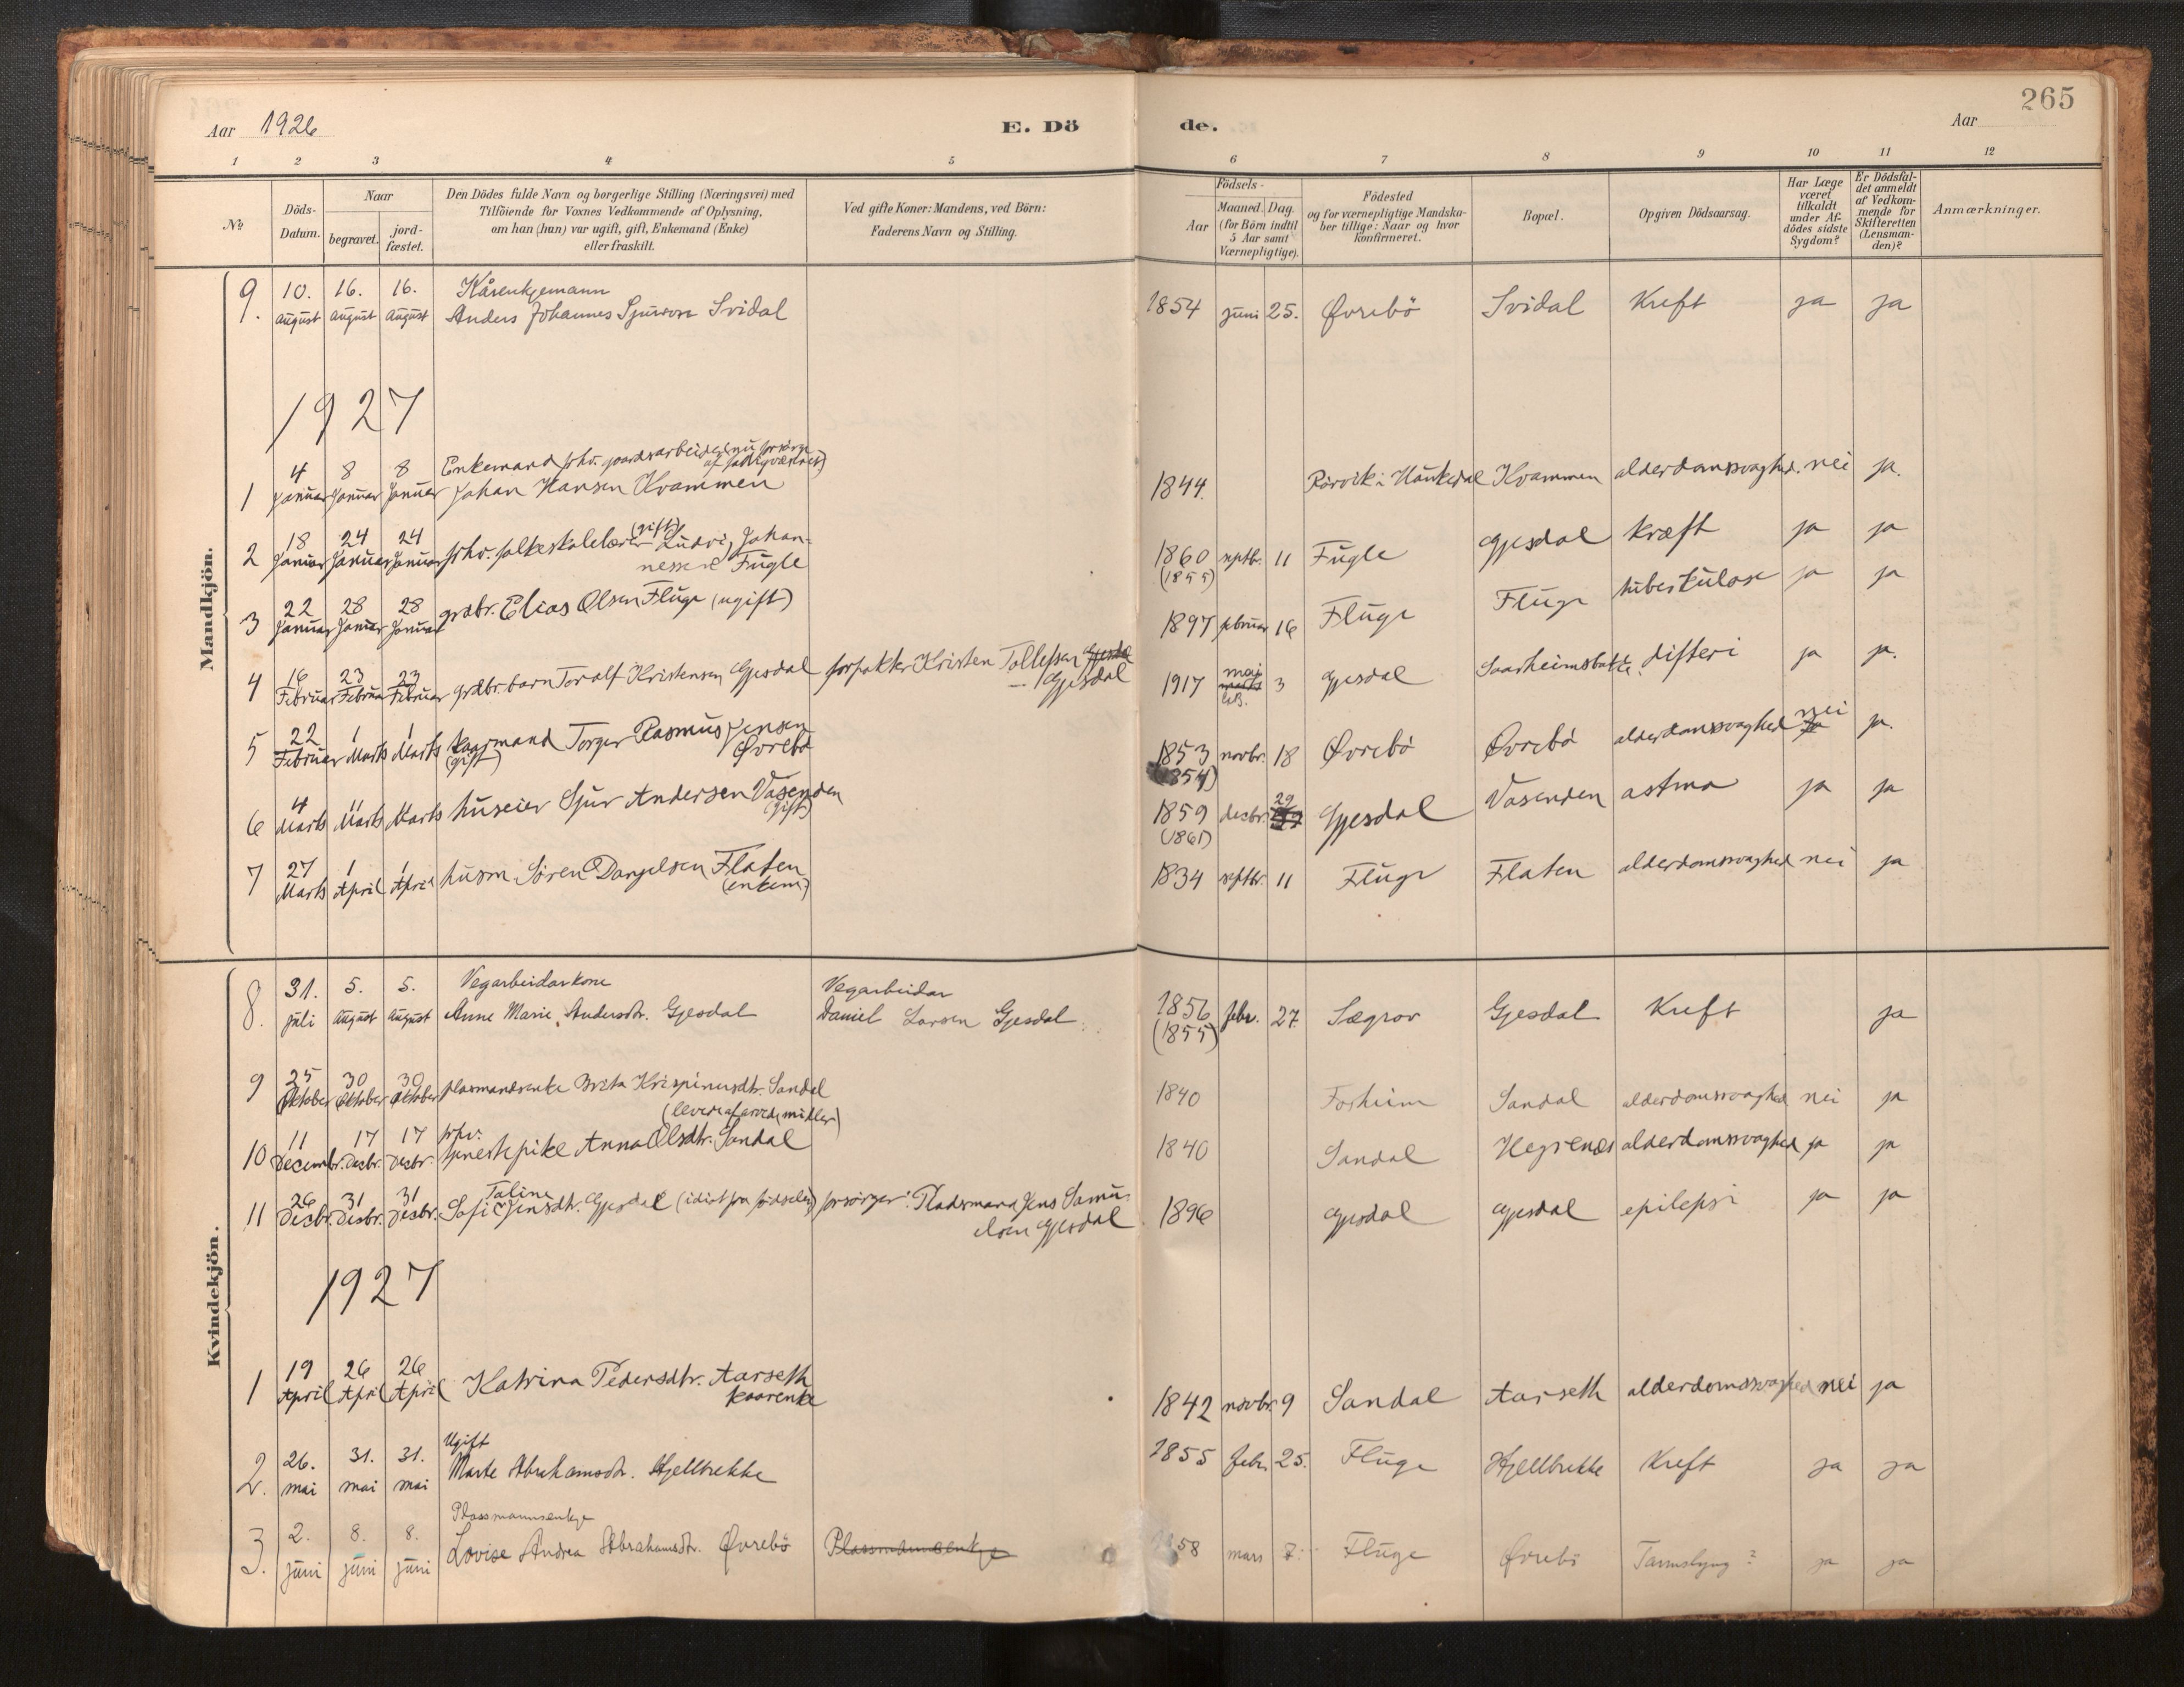 265
Aar 1926 E. Dö de. Aar
1 2 3 4 5 6 7 8 9 10 11 12
No
Döds-Datum.
Naar
begravet. jord-fæstet.
Den Dödes fulde Navn og borgerlige Stilling (Næringsvei) med
Tilföiende for Voxnes Vedkommende af Oplysning,
om han (hun) var ugift, gift, Enkemand (Enke)
eller fraskilt.
Ved gifte Koner: Mandens, ved Börn:
Faderens Navn og Stilling.
Födsels-
Aar Maaned. Dag.
(for Börn indtil
5 Aar samt
Værnepligtige).
Födested
og for værnepligtige Mandska-
ber tillige: Naar og hvor
konfirmeret.
Bopæl.
Opgiven Dödsaarsag.
Har Læge
været
tilkaldt
under Af-
dödes sidste
Sygdom?
Er Dödsfal-
det anmeldt
af Vedkom-
mende for
Skifteretten
(Lensman-
den)?
Anmærkninger.
Mandkjön.
9. 10. august 16. august 16. august Kårenkjemann
Anders Johannes Sjurson Svidal 1854 juni 25. Øvrebö Svidal Kreft ja ja
1927
1 4 Januar 8 Januar 8 Januar Enkemand fhv.
Johan Hansen Kvammen 1844. Rörvik i Haukedal Kvammen alderdomssvaghed. nei ja.
2 18 Januar 24 Januar 24 Januar fhv. folkeskolelærer (gift) Ludvig Johan-
nessen Fugle 1860 (1855) septbr. 11 Fugle Gjesdal kræft ja ja
3 22 Januar 28 Januar 28 Januar grdbr. Elias Olsen Fluge (ugift) 1897 februar 16 Fluge Fluge tuberkulose ja ja
4 16 Februar 23 Februar 23 Februar grdbr.barn Toralf Kristensen Gjesdal forpakter Kristen Tollefsen Gjesdal
Gjesdal 1917 mai 3 Gjesdal difteri ja ja.
5 22 Februar 1 Marts 1 Marts kaarmand Torger Rasmus Jensen
(gift) Øvrebö 1853 (1854) novbr. 18 Øvrebö Øvrebö alderdomssvaghed nei ja ja.
6 4 Marts 11 Marts 11 Marts huseier Sjur Andersen Vasenden
(gift) 1859 (1861) decbr. 29 Gjesdal Vasenden astma ja ja
7 27 Marts 1 April 1 April husm. Sören Danjelsen Flaten
(enkem.) 1834 septbr. 11 Fluge Flaten alderdomssvaghed nei ja
Kvindekjön.
8. 31. juli 5. august 5. august Vegarbeidarkone
Anne Marie Andersdtr. Gjesdal Vegarbeidar
Daniel Larsen Gjesdal 1856 (1855) febr. 27. Sægrov Gjesdal Kreft ja
9 25 Oktober 30 Oktober 30 Oktober plasmandsenke Brita Krispinusdtr. Sandal 1840 Forheim Sandal alderdomssvaghed nei ja
10 11 Decembr. 17 Decbr. 17 Decbr. fhv. (lever af arvede midler)
tjenestepike Anna Olsdtr. Sandal 1840 Sandal Hegrenæs alderdomssvaghed ja ja
11 26 Decbr. 31 Decbr. 31 Decbr. Taline
Sofi Jensdtr. Gjesdal (idiot fra fødselen) forsörger: Pladsmand Jens Samu-
elsen Gjesdal 1896 Gjesdal Gjesdal epilepsi ja ja
1927
1 19 April 26 April 26 April Katrina Pedersdtr. Aarseth
kaarenke 1842 novbr. 9 Sandal Aarseth alderdomssvaghed nei ja
2. 26. mai 31. mai 31. mai Ugift
Marte Abrahamsdtr. Hjellbrekke 1855 febr. 25. Fluge Hjellbrekke Kreft ja ja
3. 2. juni 8. juni 8. juni Plassmannsenkje
Lovise Andrea Abrahamsdtr. Øvrebö Plassmannsenkje 1858 mars 7. Fluge Øvrebö Tarmslyng? ja ja